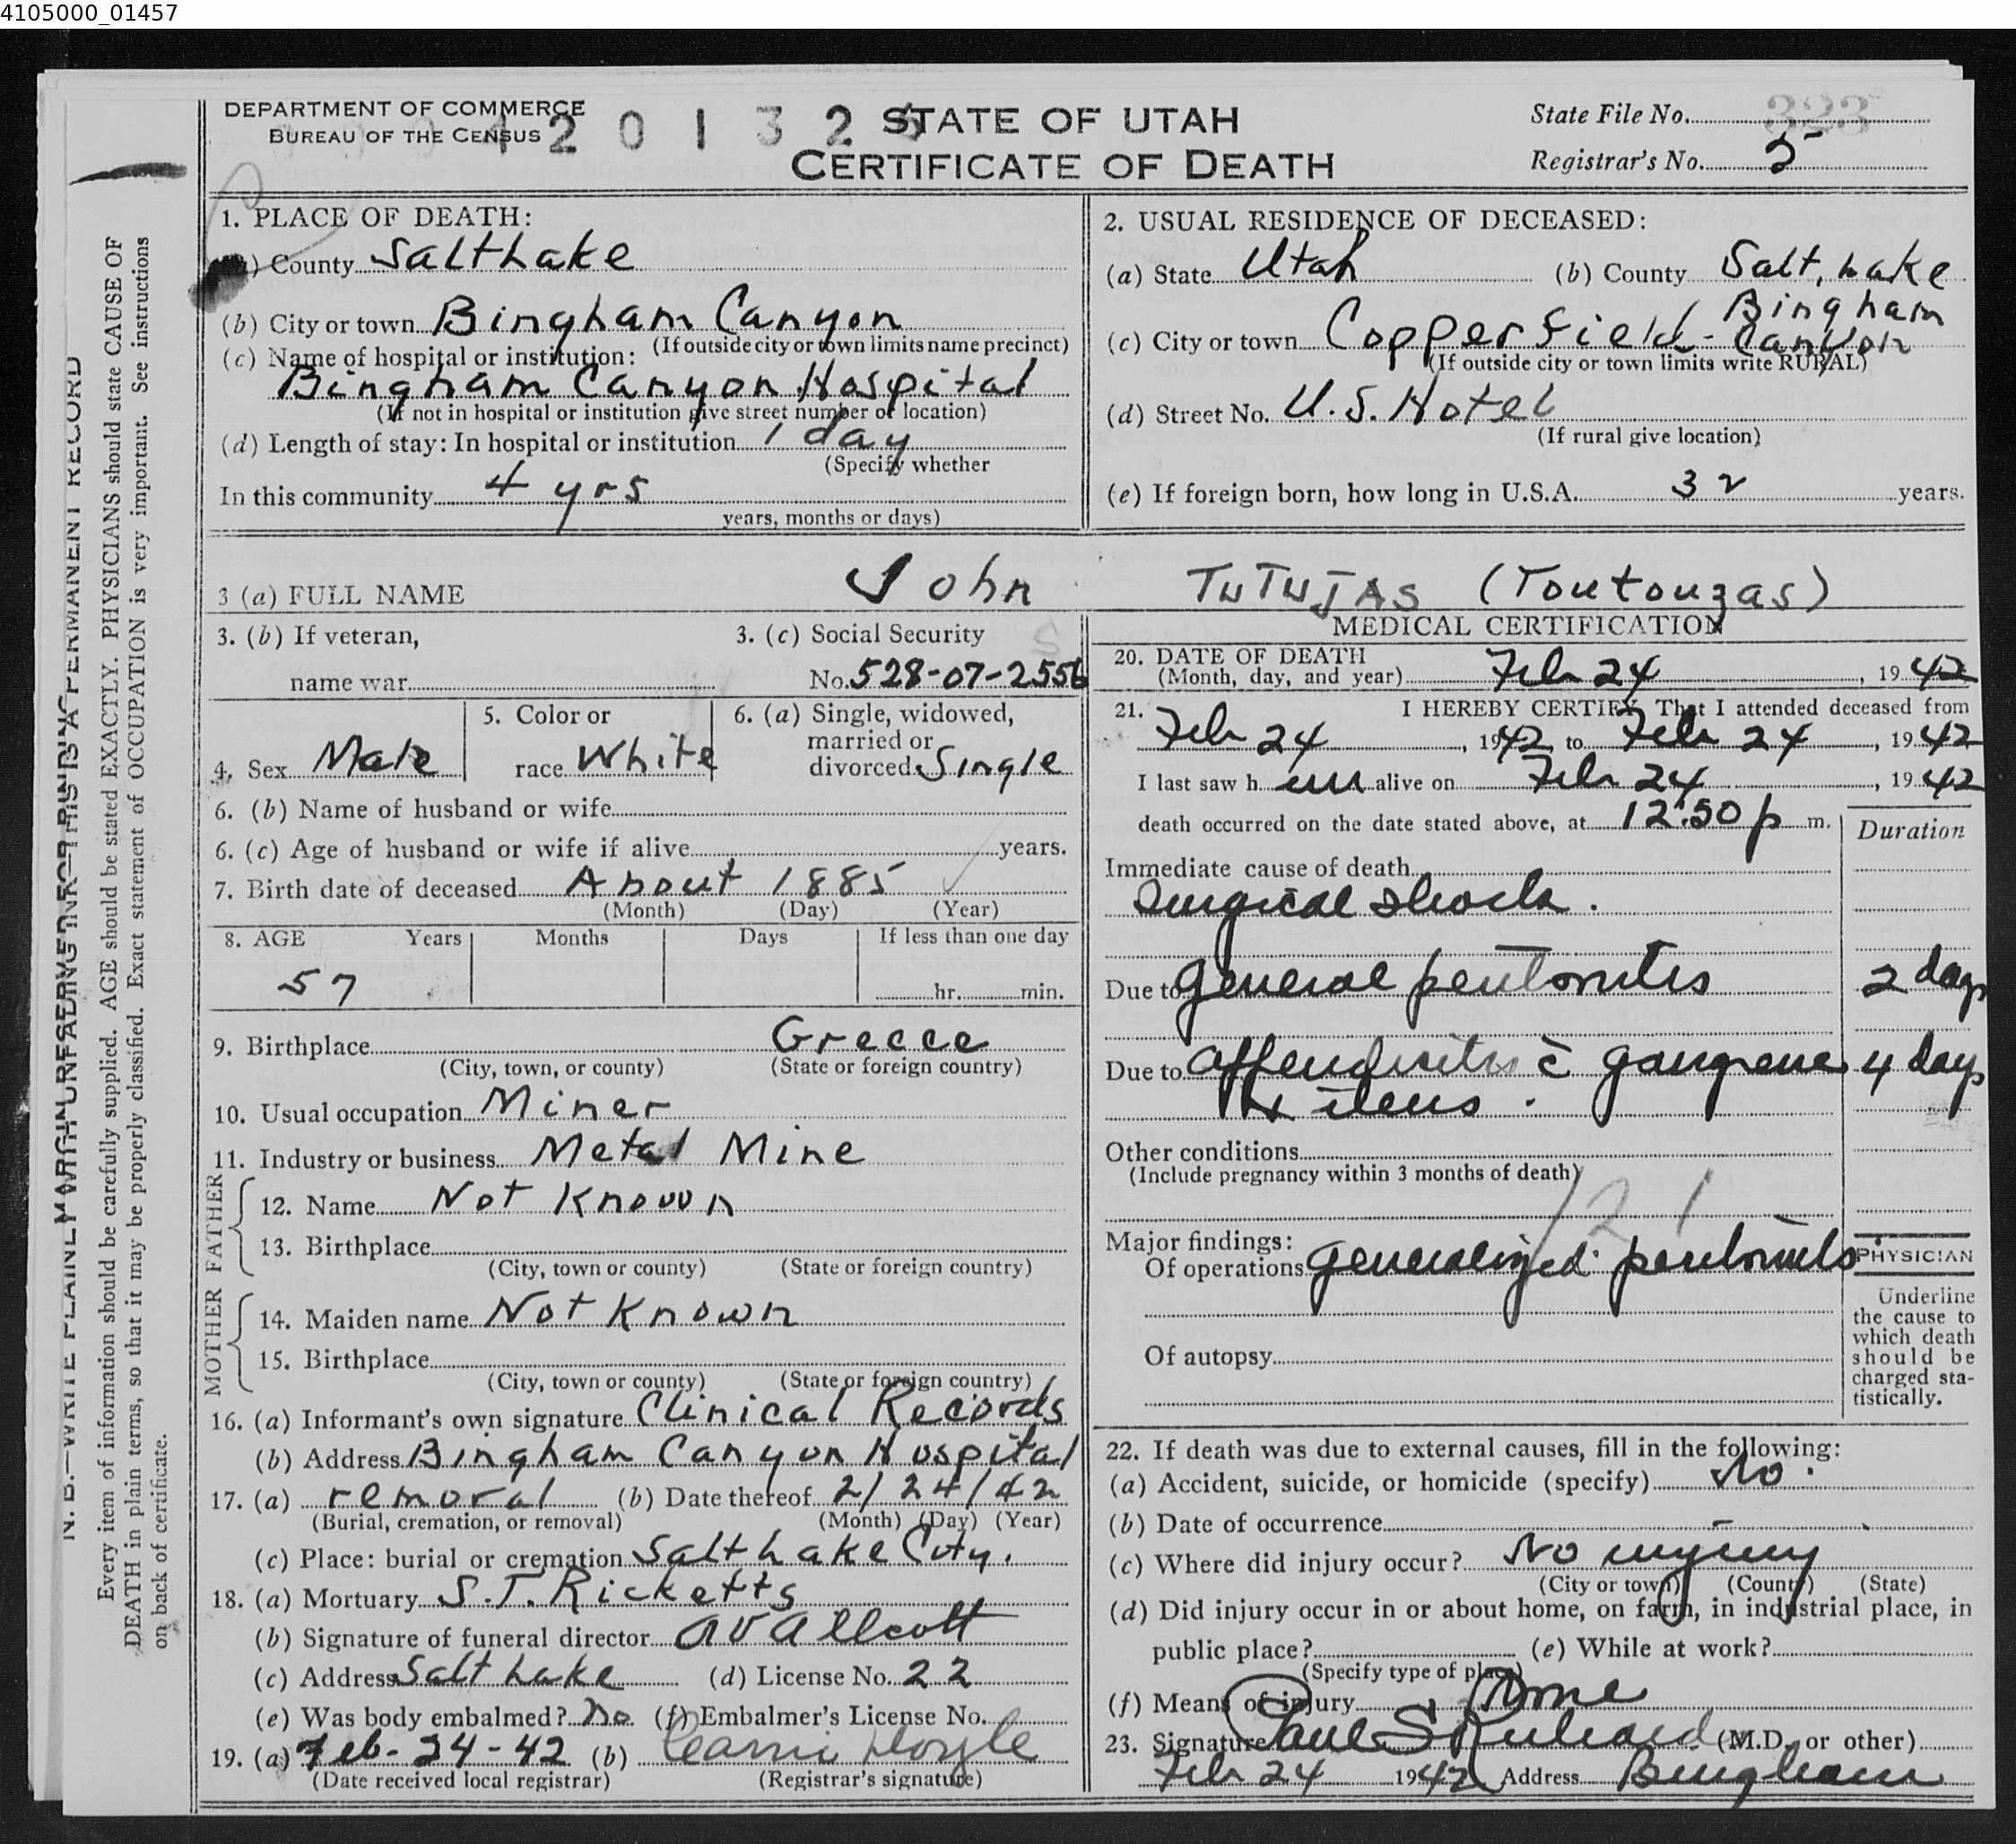 4105000_01457
DEPARTMENT OF COMMERCE
BUREAU OF THE CENSUS
STATE OF UTAH
CERTIFICATE OF DEATH
State File No. 323
Registrar's No. 5
N. B.—WRITE PLAINLY WITH UNFADING INK—THIS IS A PERMANENT RECORD
Every item of information should be carefully supplied. AGE should be stated EXACTLY. PHYSICIANS should state CAUSE OF
DEATH in plain terms, so that it may be properly classified. Exact statement of OCCUPATION is very important. See instructions
on back of certificate.
1. PLACE OF DEATH:
(a) County Salt Lake
(b) City or town Bingham Canyon
(If outside city or town limits name precinct)
(c) Name of hospital or institution:
Bingham Canyon Hospital
(If not in hospital or institution give street number or location)
(d) Length of stay: In hospital or institution 1 day
(Specify whether
In this community 4 yrs
years, months or days)
2. USUAL RESIDENCE OF DECEASED:
(a) State Utah (b) County Salt, Lake
Bingham
(c) City or town Copperfield - Canyon
(If outside city or town limits write RURAL)
(d) Street No. U.S. Hotel
(If rural give location)
(e) If foreign born, how long in U.S.A. 32 years.
3 (a) FULL NAME John TUTUJAS (Toutouzas)
3. (b) If veteran,
name war
3. (c) Social Security
No. 528-07-2556
4. Sex Male
5. Color or
race White
6. (a) Single, widowed,
married or
divorced Single
6. (b) Name of husband or wife
6. (c) Age of husband or wife if alive years.
7. Birth date of deceased About 1885
(Month) (Day) (Year)
8. AGE Years Months Days If less than one day
57 hr. min.
9. Birthplace Greece
(City, town, or county) (State or foreign country)
10. Usual occupation Miner
11. Industry or business Metal Mine
FATHER
12. Name Not Known
13. Birthplace
(City, town or county) (State or foreign country)
MOTHER
14. Maiden name Not Known
15. Birthplace
(City, town or county) (State or foreign country)
16. (a) Informant's own signature Clinical Records
(b) Address Bingham Canyon Hospital
17. (a) removal (b) Date thereof 2/24/42
(Burial, cremation, or removal) (Month) (Day) (Year)
(c) Place: burial or cremation Salt Lake City.
18. (a) Mortuary S.T. Ricketts
(b) Signature of funeral director A V Allcott
(c) Address Salt Lake (d) License No. 22
(e) Was body embalmed? No (f) Embalmer's License No.
19. (a) Feb-24-42 (b) Hoyle
(Date received local registrar) (Registrar's signature)
MEDICAL CERTIFICATION
20. DATE OF DEATH
(Month, day, and year) Feb 24, 1942
21. I HEREBY CERTIFY, That I attended deceased from
Feb 24, 1942 to Feb 24, 1942
I last saw him alive on Feb 24, 1942
death occurred on the date stated above, at 12:50 p m.
Duration
Immediate cause of death
Surgical shock.
Due to general peritonitis 2 days
Due to appendicitis c̄ gangrene 4 days
+ ileus.
Other conditions
(Include pregnancy within 3 months of death)
121
Major findings:
Of operations generalized peritonitis
Of autopsy
PHYSICIAN
Underline
the cause to
which death
should be
charged sta-
tistically.
22. If death was due to external causes, fill in the following:
(a) Accident, suicide, or homicide (specify) No.
(b) Date of occurrence -
(c) Where did injury occur? No injury
(City or town) (County) (State)
(d) Did injury occur in or about home, on farm, in industrial place, in
public place? (e) While at work?
(Specify type of place)
(f) Means of injury None
23. Signature Paul S Richards (M.D. or other)
Feb 24 1942 Address Bingham